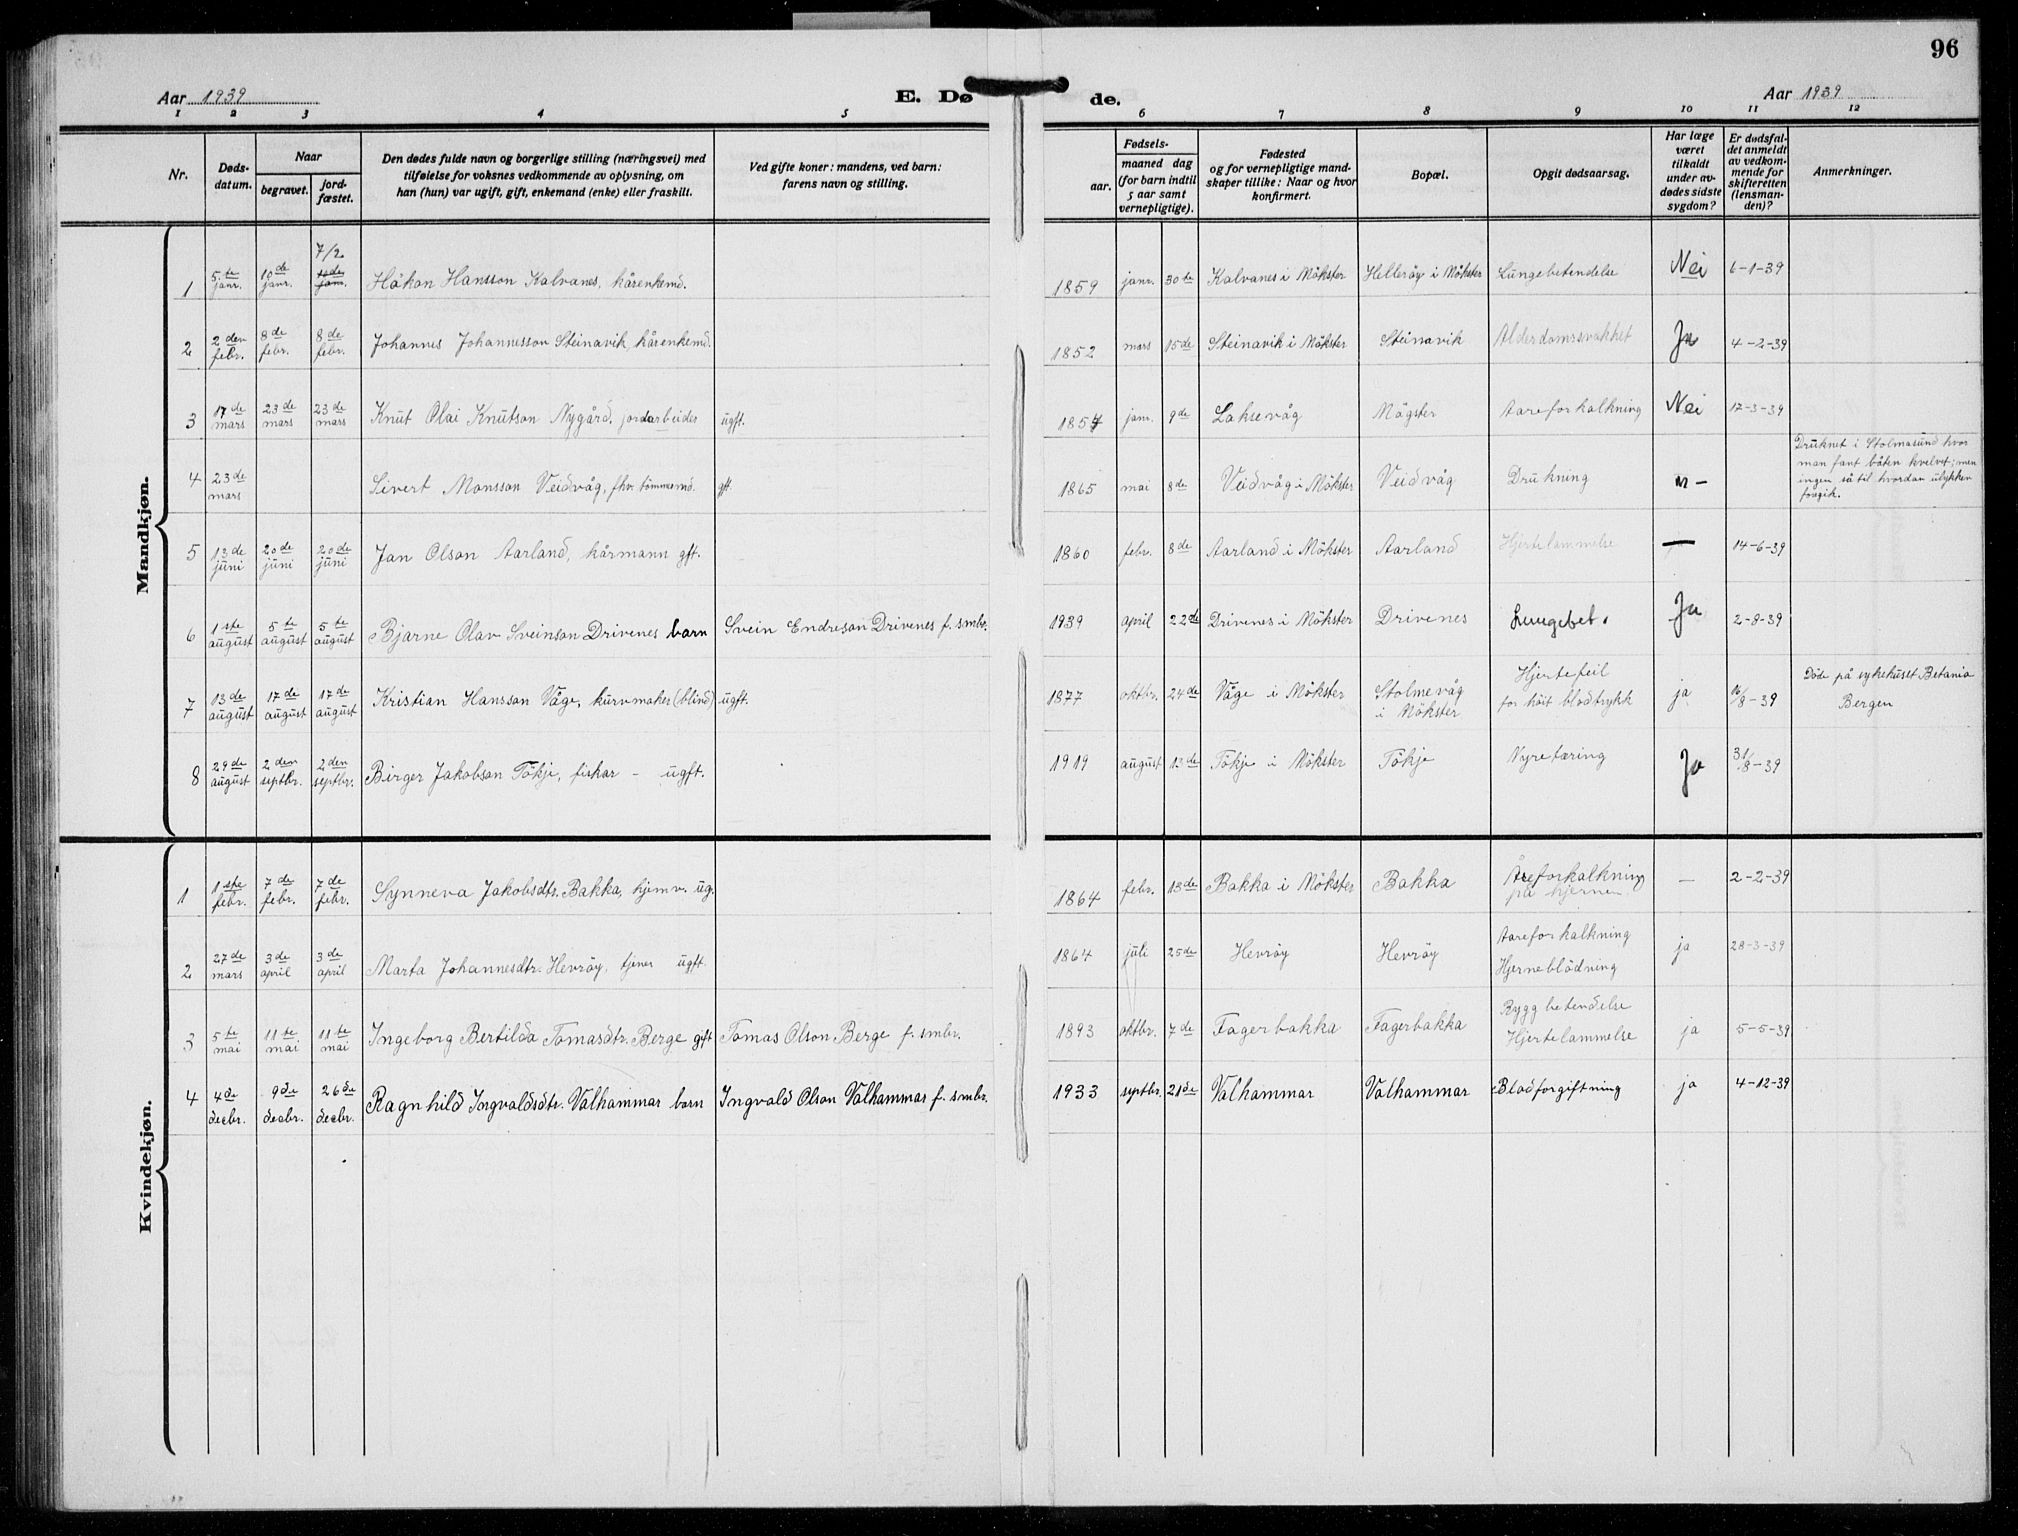 96
Aar 1939
E. Dø
de.
Aar 1939
1 2 3 4 5 6 7 8 9 10 11 12
Nr.
Døds-
datum.
Naar
begravet.
jord-
fæstet.
Den dødes fulde navn og borgerlige stilling (næringsvei) med
tilføielse for voksnes vedkommende av oplysning, om
han (hun) var ugift, gift, enkemand (enke) eller fraskilt.
Ved gifte koner: mandens, ved barn:
farens navn og stilling.
Fødsels-
aar.
maaned dag
(for barn indtil
5 aar samt
vernepligtige).
Fødested
og for vernepligtige mand-
skaper tillike: Naar og hvor
konfirmert.
Bopæl.
Opgit dødsaarsag.
Har læge
været
tilkaldt
under av-
dødes sidste
sygdom?
Er dødsfal-
det anmeldt
av vedkom-
mende for
skifteretten
(lensman-
den)?
Anmerkninger.
Mandkjøn.
7/2
1 5te janr. 10de janr. 10de janr. Håkon Hansson Kalvanes, kårenkemd. 1859 janr. 30te Kalvanes i Møkster Hellerøy i Møkster Lungebetendelse Nei 6-1-39
2 2den febr. 8de febr. 8de febr. Johannes Johannesson Steinavik kårenkemd. 1852 mars 15de Steinavik i Møkster Steinavik Alderdomssvakhet Ja 4-2-39
3 17de mars 23de mars 23de mars Knut Olai Knutson Nygård, jordarbeider ugft. 1857 janr. 9de Laksevåg Møgster Aareforkalkning Nei 17-3-39
4 23de mars Sivert Monsson Veidvåg, fhv. tømmermd. gft. 1865 mai 8de Veidvåg i Møkster Veidvåg Drukning n-
Druknet i Stolmasund hvor
man fant båten kvelvet; men
ingen så til hvordan ulykken
foregik.
5 13de juni 20de juni 20de juni Jan Olson Aarland, kårmann gft. 1860 febr. 8de Aarland i Møkster Aarland Hjertelammelse — 14-6-39
6 1ste august 5te august 5te august Bjarne Olav Sveinson Drivenes barn Svein Endreson Drivenes f. smbr. 1939 april 22de Drivenes i Møkster Drivenes Lungebet. Ja 2-8-39
7 13de august 17de august 17de august Kristian Hansson Våge, kurvmaker (blind) ugft. 1877 oktbr. 24de Våge i Møkster Stolmevåg
i Møkster Hjertefeil
for høit blodtrykk ja 16/8-39 Døde på sykehuset Betania
Bergen
8 29de august 2den septbr. 2den septbr. Birger Jakobson Tøkje, fiskar - ugft. 1919 august 13de Tøkje i Møkster Tøkje Nyretæring Ja 31/8-39
Kvindekjøn.
1 1ste febr. 7de febr. 7de febr. Synneva Jakobsdtr. Bakka, hjemv. ug. 1864 febr. 13de Bakka i Møkster Bakka Åreforkalkning
på hjernen — 2-2-39
2 27de mars 3de april 3de april Marta Johannesdtr. Hevrøy, tjener ugft. 1864 juli 25de Hevrøy Hevrøy Aareforkalkning
Hjerneblødning ja 28-3-39
3 5te mai 11te mai 11te mai Ingeborg Bertilda Tomasdtr. Berge gift Tomas Olson Berge f. smbr. 1893 oktbr. 7de Fagerbakka Fagerbakka Ryggbetendelse
Hjertelammelse ja 5-5-39
4 4de decbr. 9de decbr. 26de decbr. Ragnhild Ingvaldsdtr. Valhammar barn Ingvald Olson Valhammar f. smbr. 1933 septbr. 21de Valhammar Valhammar Blodforgiftning ja 4-12-39